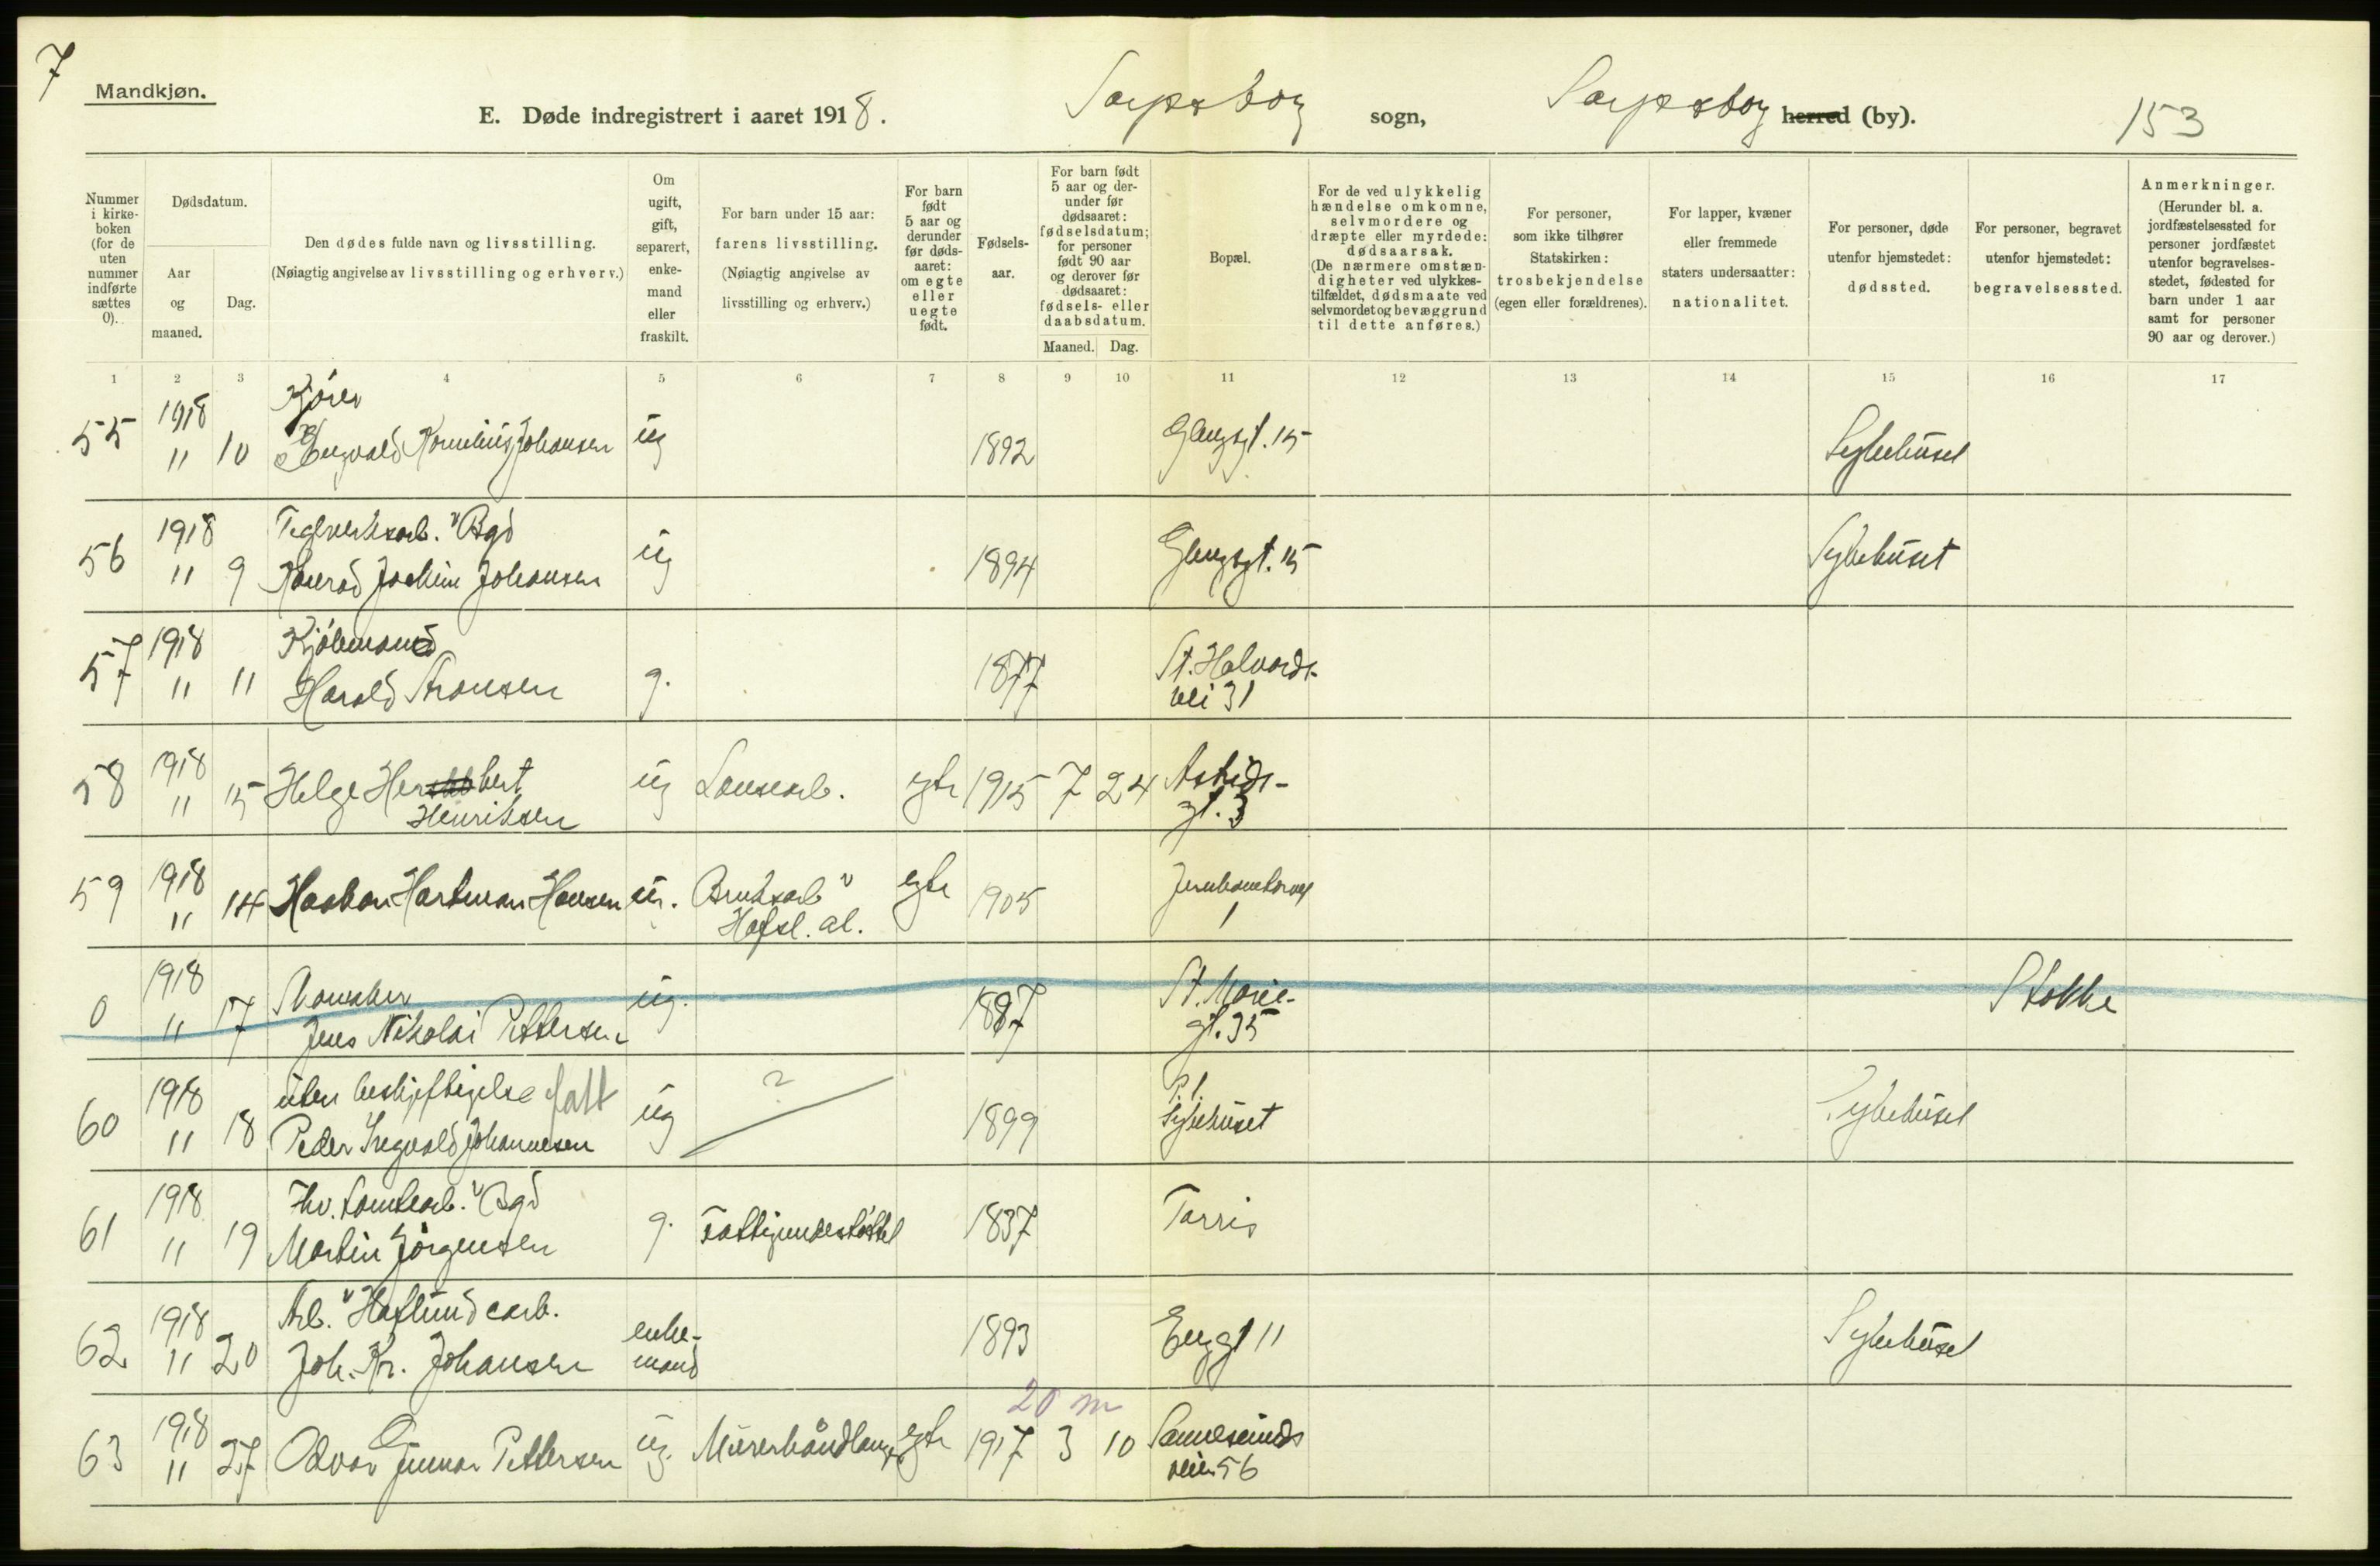 7
Mandkjøn.
E. Døde indregistrert i aaret 1918.
Sarpsborg sogn, Sarpsborg herred (by).
153
Nummer i kirkeboken (for de uten nummer indførte sættes 0).
Dødsdatum.
Aar og maaned.
Dag.
Den dødes fulde navn og livsstilling.
(Nøiagtig angivelse av livsstilling og erhverv.)
Om ugift, gift, separert, enkemand eller fraskilt.
For barn under 15 aar: farens livsstilling.
(Nøiagtig angivelse av livsstilling og erhverv.)
For barn født 5 aar og derunder før dødsaaret: om egte eller uegte født.
Fødselsaar.
For barn født 5 aar og derunder før dødsaaret: fødselsdatum; for personer født 90 aar og derover før dødsaaret: fødsels- eller daabsdatum.
Maaned. Dag.
Bopæl.
For de ved ulykkelig hændelse omkomne, selvmordere og dræpte eller myrdede: dødsaarsak.
(De nærmere omstændigheter ved ulykkestilfældet, dødsmaate ved selvmordet og bevæggrund til dette anføres.)
For personer, som ikke tilhører Statskirken: trosbekjendelse (egen eller forældrenes).
For lapper, kvæner eller fremmede staters undersaatter: nationalitet.
For personer, døde utenfor hjemstedet: dødssted.
For personer, begravet utenfor hjemstedet: begravelsessted.
Anmerkninger.
(Herunder bl. a. jordfæstelsessted for personer jordfæstet utenfor begravelsesstedet, fødested for barn under 1 aar samt for personer 90 aar og derover.)
1 2 3 4 5 6 7 8 9 10 11 12 13 14 15 16 17
1918 Kjører
55 11 10 Kornelius Johansen ug 1892 Glengsgt. 15 Sykehuset
1918 Teglverksarb. v Bgd
56 11 9 Konrad Joakim Johansen ug 1894 Glengsgt. 15 Sykehuset
1918 Kjøbmand
57 11 11 Harald g. 1877 St. Halvards-
vei 31
1918
58 11 15 Helge Herbert ug egte 1915 7 24 Astrids-
Henriksen gt. 3
1918
59 11 14 Haakon Hartman Hansen ug. Bruksarb v egte 1905 Jernbanetorvet
Hafsl. al. 1
1918
0 11 17 Jens Nikolai Pettersen ug. 1887 St. Marie-
gt. 35 Stokke
1918 uten beskjeftigelse fatt ?
60 11 18 Peder Ingvald Johannesen ug 1899 P. t.
Sykehuset Sykehuset
1918 Fhv. tomtearb. v Bgd
61 11 19 Martin Jørgensen g. Fattigunderstøttet 1837 Tarris
1918 Arb. v Hafslund carb.
62 11 20 Joh. Kr. Johansen enke-
mand 1893 Enggt 11 Sykehuset
20 m
1918
63 11 27 Odvar Gunnar Pettersen ug. Murerhåndlanger egte 1917 3 10 Sannesunds
veien 56